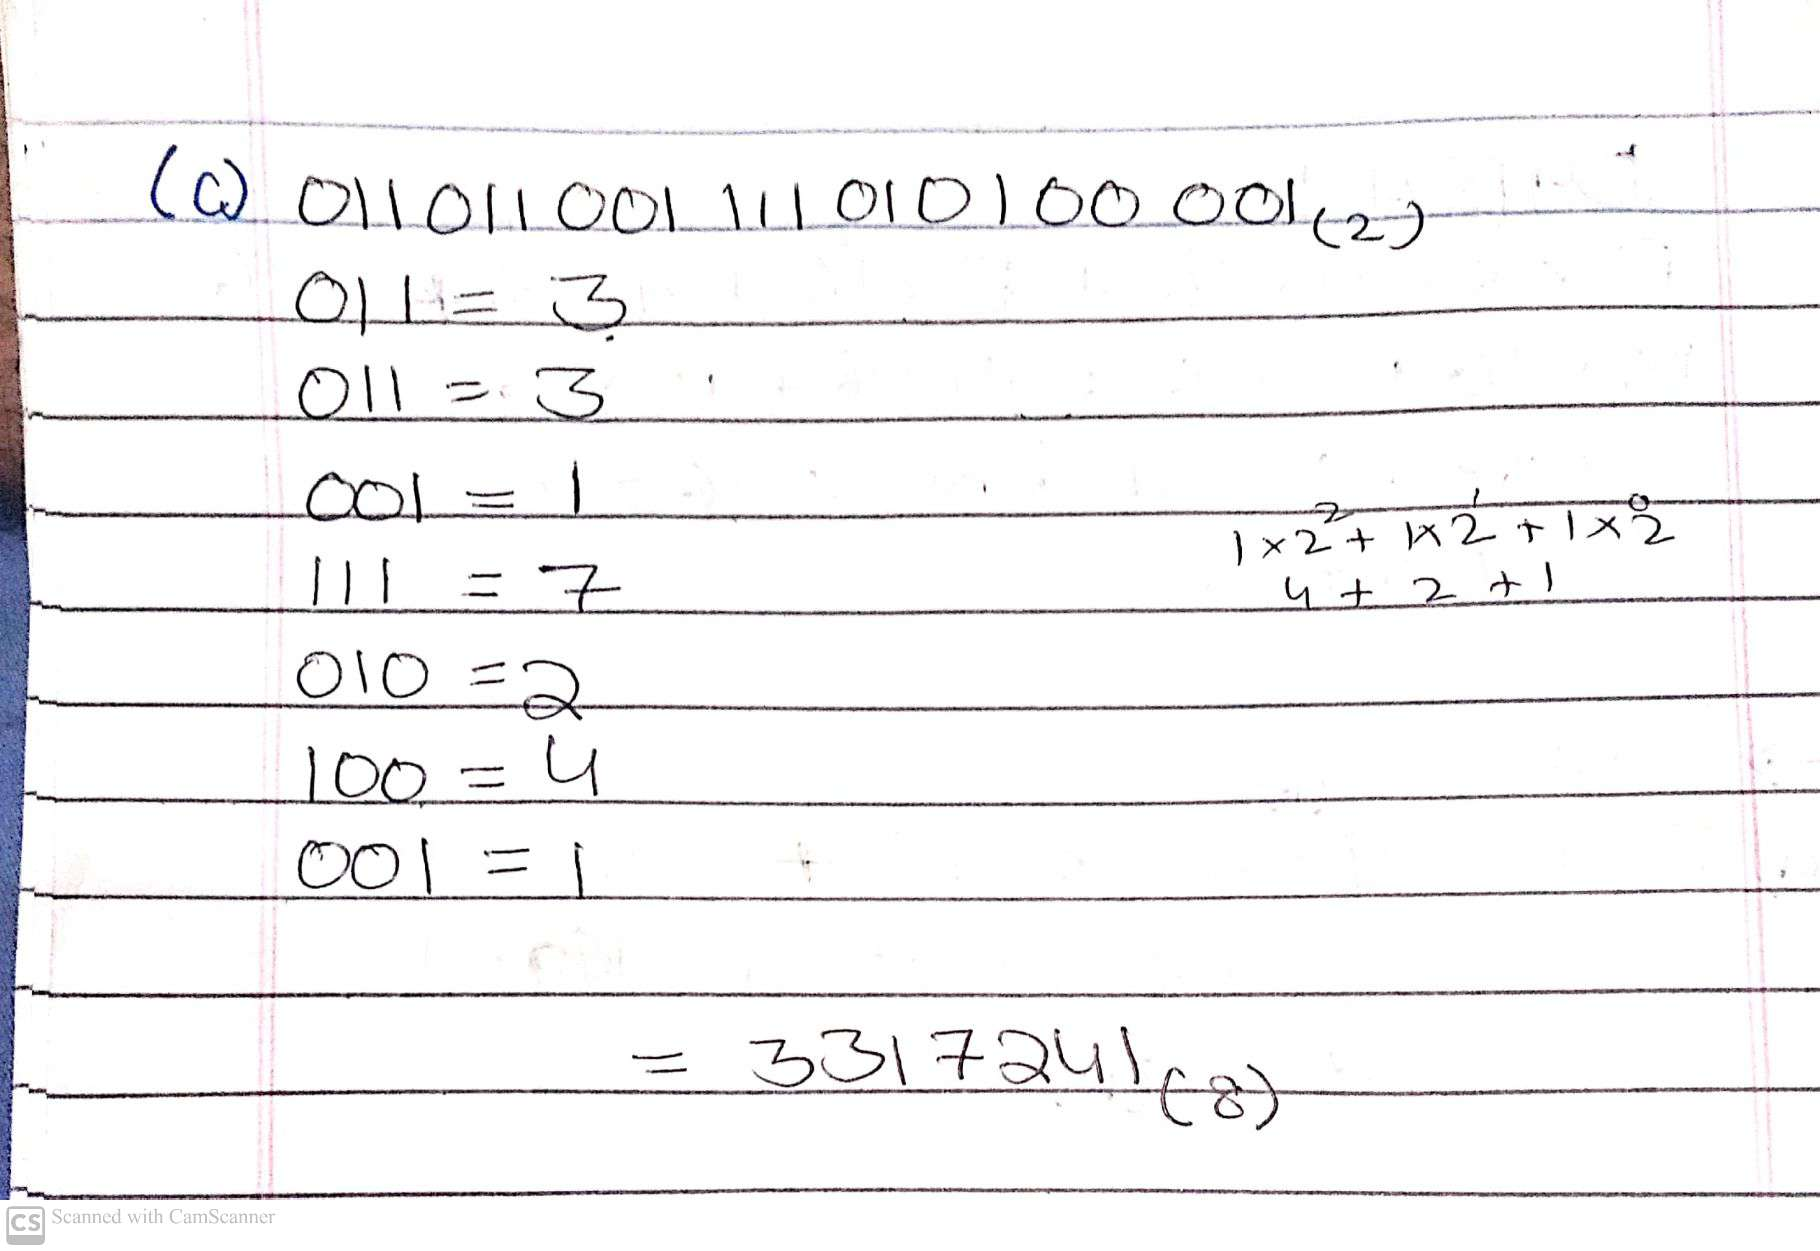 (a) 011011001111010100001(2)
011 = 3
011 = 3
001 = 1
111 = 7
1×2² + 1×2¹ + 1×2⁰
4 + 2 + 1
010 = 2
100 = 4
001 = 1
= 3317241(8)
CS Scanned with CamScanner